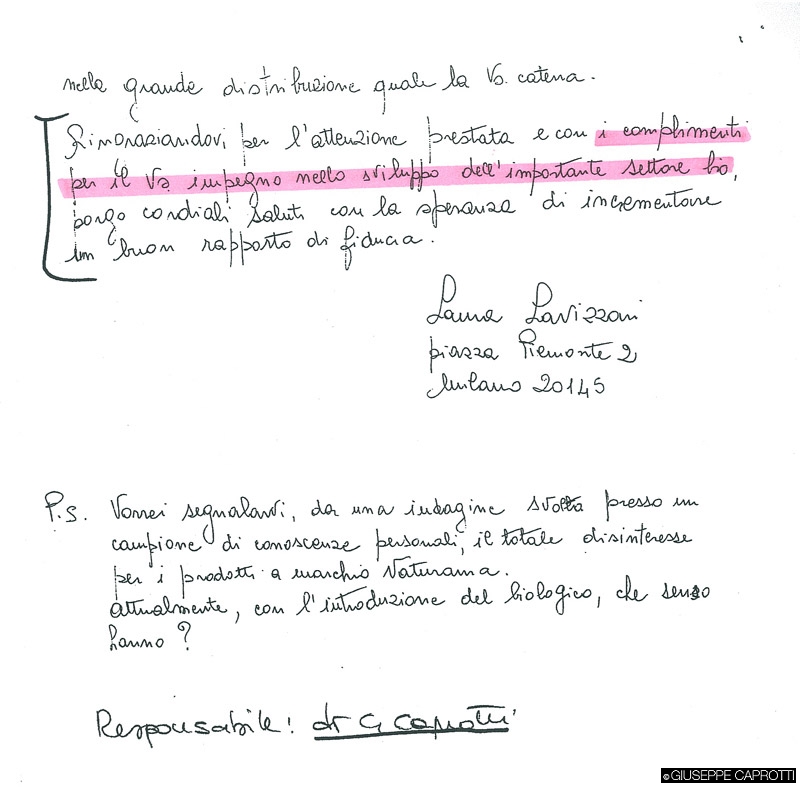 nella grande distribuzione quale la Vs. catena.
Ringraziandovi per l'attenzione prestata e con i complimenti
per il Vs impegno nello sviluppo dell'importante settore bio,
porgo cordiali saluti con la speranza di incrementare
un buon rapporto di fiducia.
Laura Lavizzari
piazza Piemonte 2
Milano 20145
P.S. Vorrei segnalarvi, da una indagine svolta presso un
campione di conoscenze personali, il totale disinteresse
per i prodotti a marchio Naturama.
Attualmente, con l'introduzione del biologico, che senso
hanno?
Responsabile: dr G Caprotti
© GIUSEPPE CAPROTTI